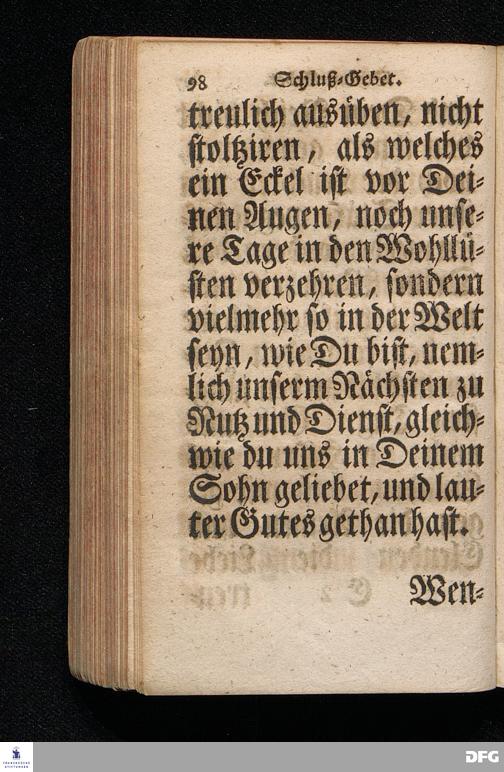 98 Schluß-Gebet.
treulich ausüben, nicht
stoltziren, als welches
ein Eckel ist vor Dei-
nen Augen, noch unse-
re Tage in den Wohllü-
sten verzehren, sondern
vielmehr so in der Welt
seyn, wie Du bist, nem-
lich unserm Nächsten zu
Nutz und Dienst, gleich-
wie du uns in Deinem
Sohn geliebet, und lau-
ter Gutes gethan hast.
Wen-
FRANCKESCHE
STIFTUNGEN
DFG